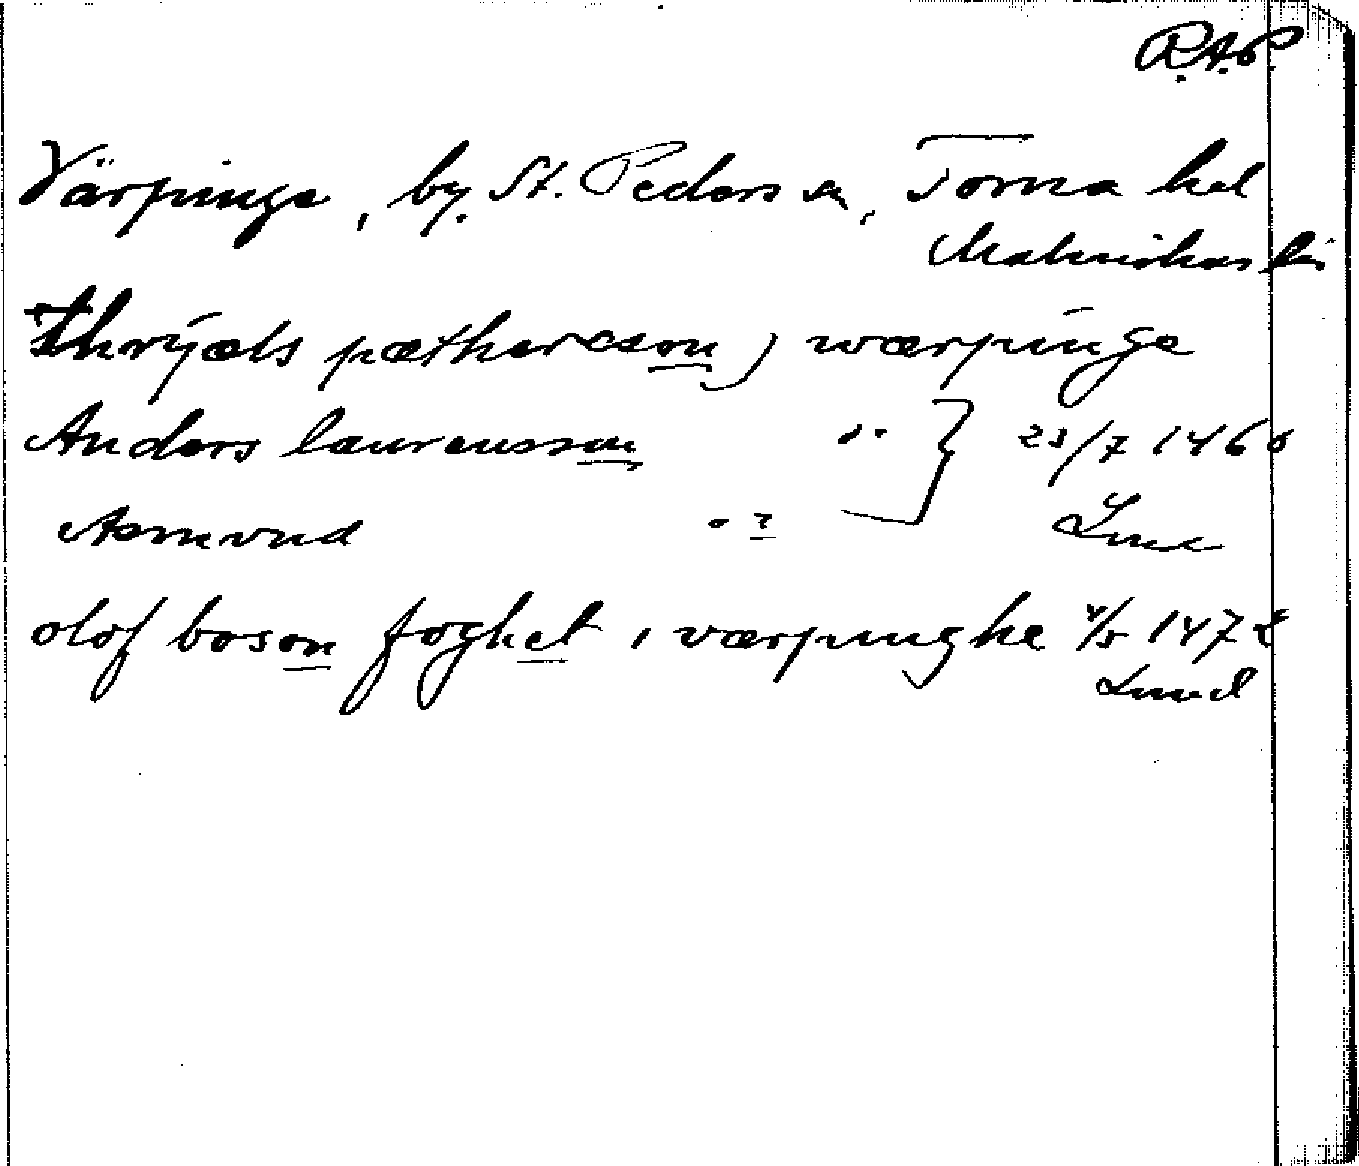 R.A.P
Värpinge, by. St. Peders sn, Torna hd
Malmöhus län
thrijæls pæthersson j wærpinge
Anders laurensson "
23/7 146
Asmvnd "
Lund
olof boson foghet i værpinghe 4/5 147
Lund